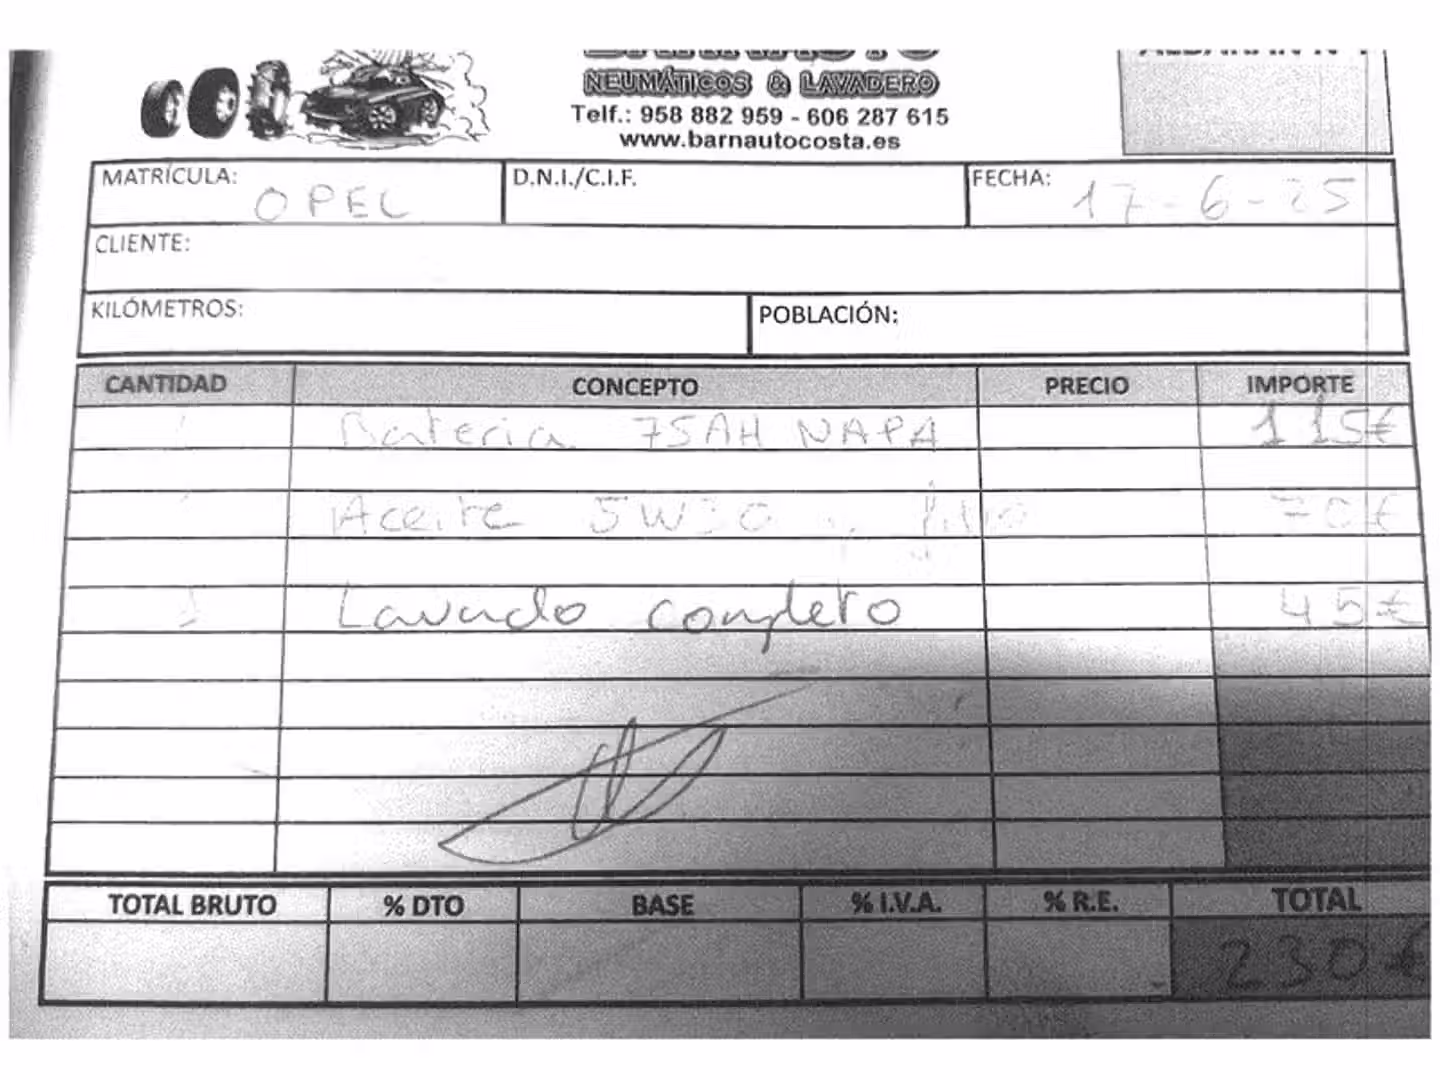 NEUMÁTICOS & LAVADERO
Telf.: 958 882 959 - 606 287 615
www.barnautocosta.es
MATRÍCULA: OPEL D.N.I./C.I.F. FECHA: 17-6-25
CLIENTE:
KILÓMETROS: POBLACIÓN:
CANTIDAD CONCEPTO PRECIO IMPORTE
1 Bateria 75AH NAPA 115€
Aceite 5W30 y filtro 70€
1 Lavado completo 45€
TOTAL BRUTO % DTO BASE % I.V.A. % R.E. TOTAL
230€